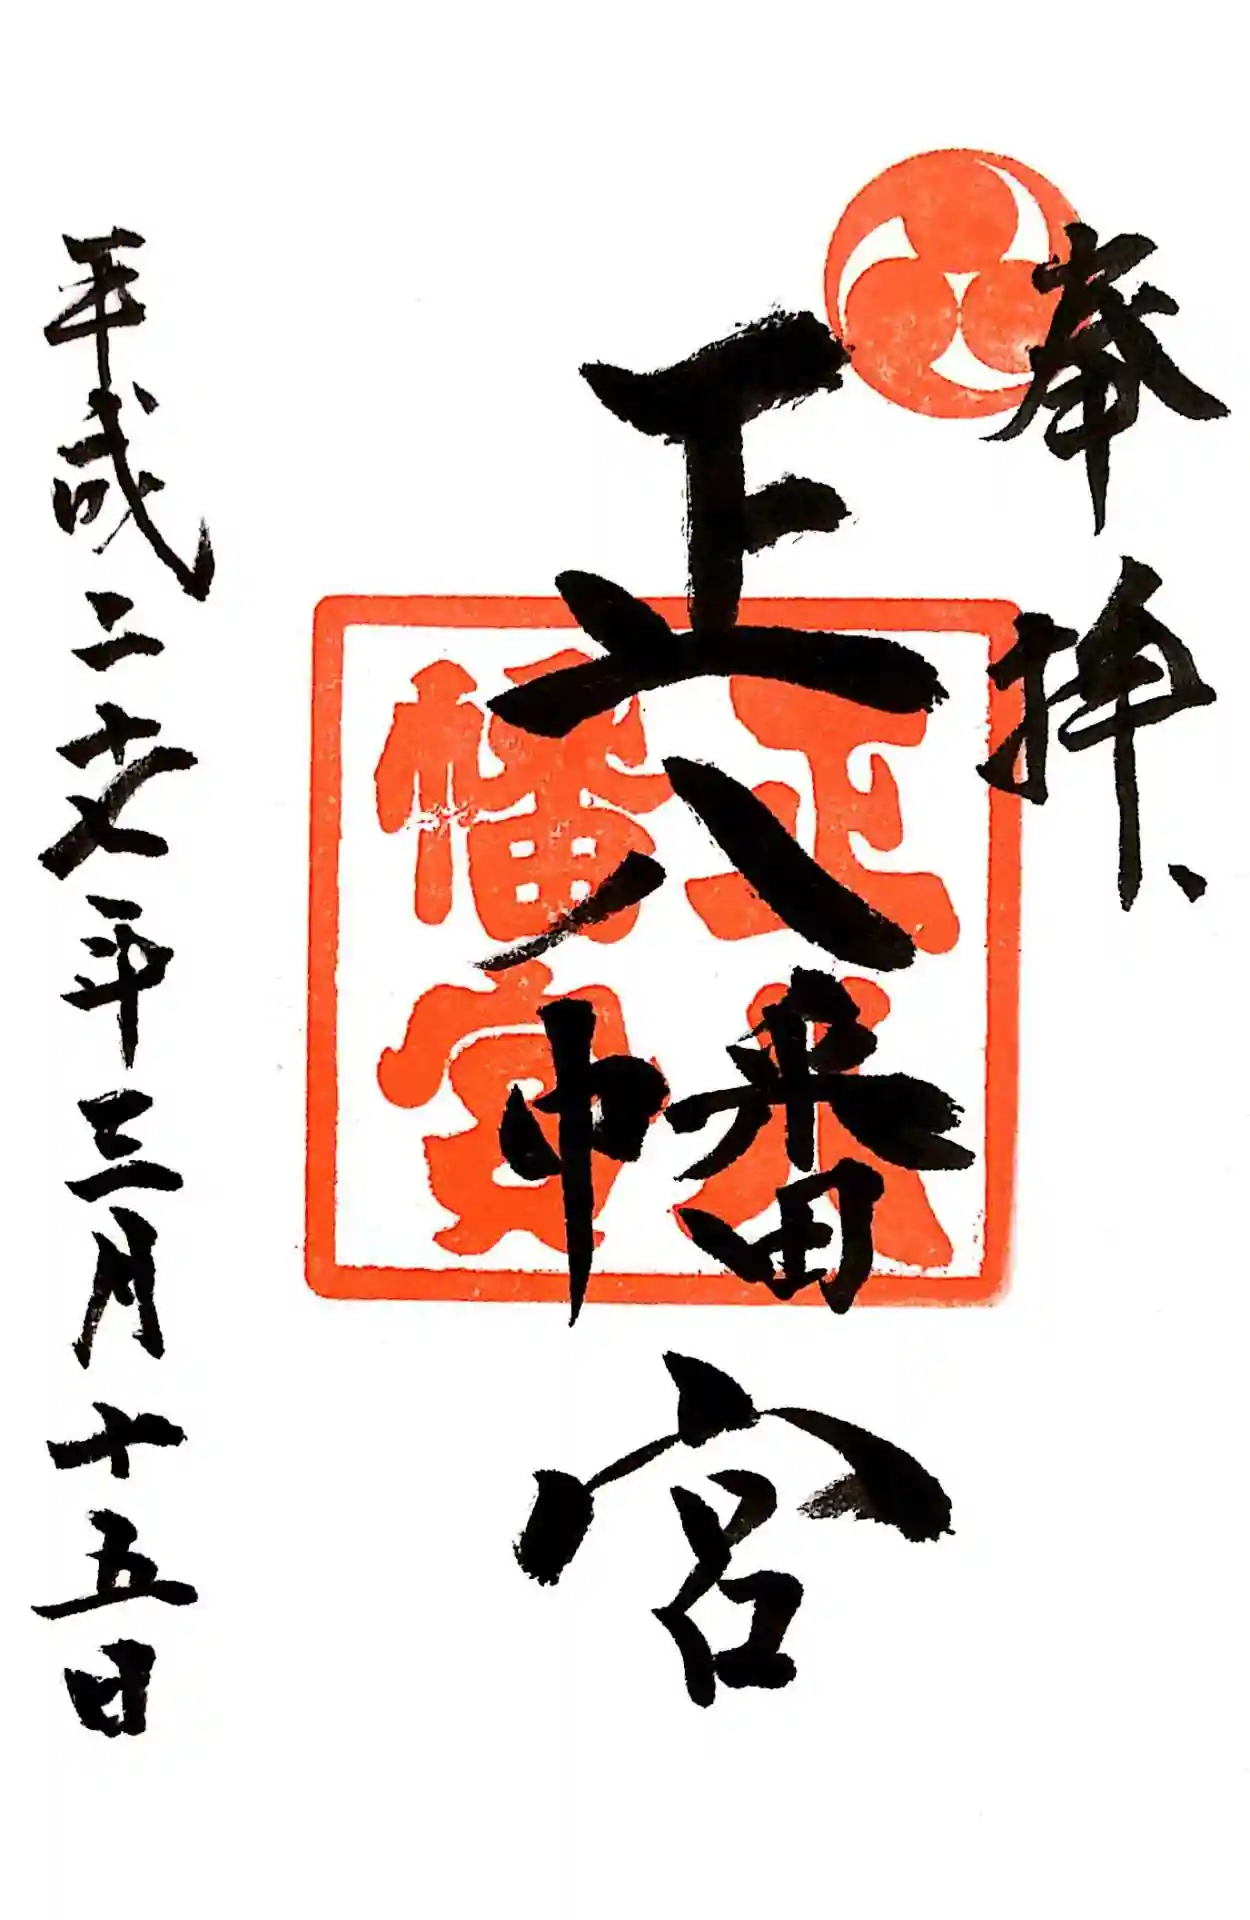 奉拝
正八幡宮
正八幡宮
平成二十七年三月十五日